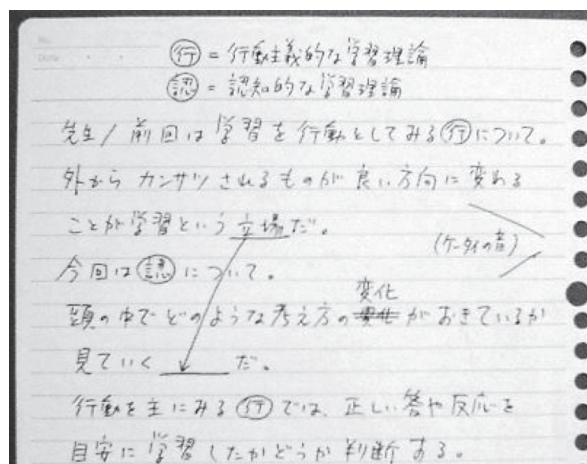 No.
Date
㋻ = 行動主義的な学習理論
㊩ = 認知的な学習理論
先生/前回は学習を行動としてみる行について。
外から カンサツ されるものが良い方向に変わる
ことが学習という立場だ。
(ケータイの音)
今回は認について。
変化
頭の中でどのような考え方の変化がおきているか
見ていく だ。
行動を主にみる行では、正しい答や反応を
目安に学習したかどうか判断する。